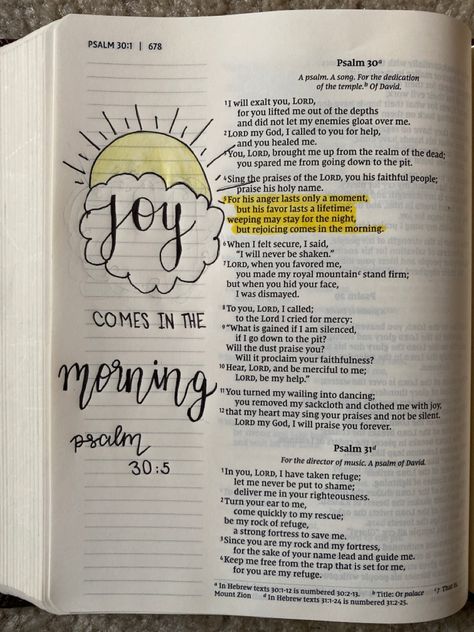 PSALM 30:1 | 678
joy
COMES IN THE
morning
psalm
30:5
Psalm 30ᵃ
A psalm. A song. For the dedication
of the temple.ᵇ Of David.
¹I will exalt you, LORD,
for you lifted me out of the depths
and did not let my enemies gloat over me.
²LORD my God, I called to you for help,
and you healed me.
You, LORD, brought me up from the realm of the dead;
you spared me from going down to the pit.
⁴Sing the praises of the LORD, you his faithful people;
praise his holy name.
⁵For his anger lasts only a moment,
but his favor lasts a lifetime;
weeping may stay for the night,
but rejoicing comes in the morning.
⁶When I felt secure, I said,
"I will never be shaken."
⁷LORD, when you favored me,
you made my royal mountainᶜ stand firm;
but when you hid your face,
I was dismayed.
⁸To you, LORD, I called;
to the Lord I cried for mercy:
⁹"What is gained if I am silenced,
if I go down to the pit?
Will the dust praise you?
Will it proclaim your faithfulness?
¹⁰Hear, LORD, and be merciful to me;
LORD, be my help."
¹¹You turned my wailing into dancing;
you removed my sackcloth and clothed me with joy,
¹²that my heart may sing your praises and not be silent.
LORD my God, I will praise you forever.
Psalm 31ᵈ
For the director of music. A psalm of David.
¹In you, LORD, I have taken refuge;
let me never be put to shame;
deliver me in your righteousness.
²Turn your ear to me,
come quickly to my rescue;
be my rock of refuge,
a strong fortress to save me.
³Since you are my rock and my fortress,
for the sake of your name lead and guide me.
⁴Keep me free from the trap that is set for me,
for you are my refuge.
ᵃ In Hebrew texts 30:1-12 is numbered 30:2-13. ᵇ Title: Or palace ᶜ 7 That is,
Mount Zion ᵈ In Hebrew texts 31:1-24 is numbered 31:2-25.